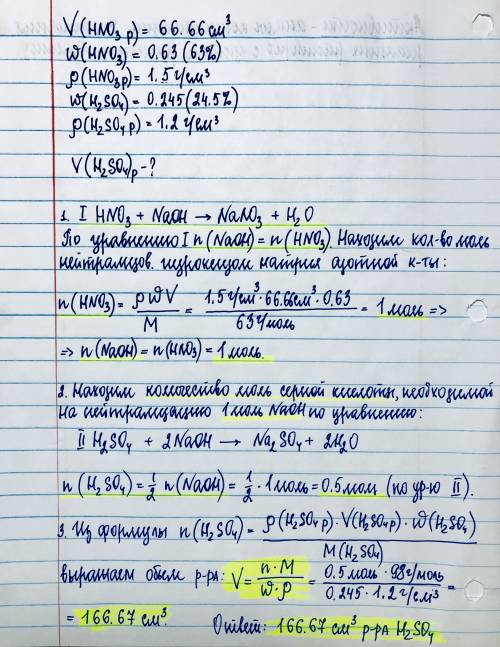 V(HNO₃ р) = 66.66 см³
ω(HNO₃) = 0,63 (63%)
ρ(HNO₃р) = 1.5 г/см³
ω(H₂SO₄) = 0.245 (24.5%)
ρ(H₂SO₄ р) = 1.2 г/см³
V(H₂SO₄)р - ?
1. I HNO₃ + NaOH → NaNO₃ + H₂O
По уравнению I n(NaOH) = n(HNO₃). Находим кол-во моль
нейтрализов. гидроксидом натрия азотной к-ты:
n(HNO₃) = ρωV/M = 1.5 г/см³ · 66.66 см³ · 0.63/63 г/моль = 1 моль =>
=> n(NaOH) = n(HNO₃) = 1 моль.
2. Находим количество моль серной кислоты, необходимой
на нейтрализацию 1 моль NaOH по уравнению:
II H₂SO₄ + 2NaOH → Na₂SO₄ + 2H₂O
n(H₂SO₄) = 1/2 n(NaOH) = 1/2 · 1 моль = 0.5 моль (по ур-ю II).
3. Из формулы n(H₂SO₄) = ρ(H₂SO₄ р) · V(H₂SO₄ р) · ω(H₂SO₄)/M(H₂SO₄)
выражаем объем р-ра: V = n · M/ω · ρ = 0.5 моль · 98 г/моль/0.245 · 1.2 г/см³ =
= 166.67 см³. Ответ: 166.67 см³ р-ра H₂SO₄